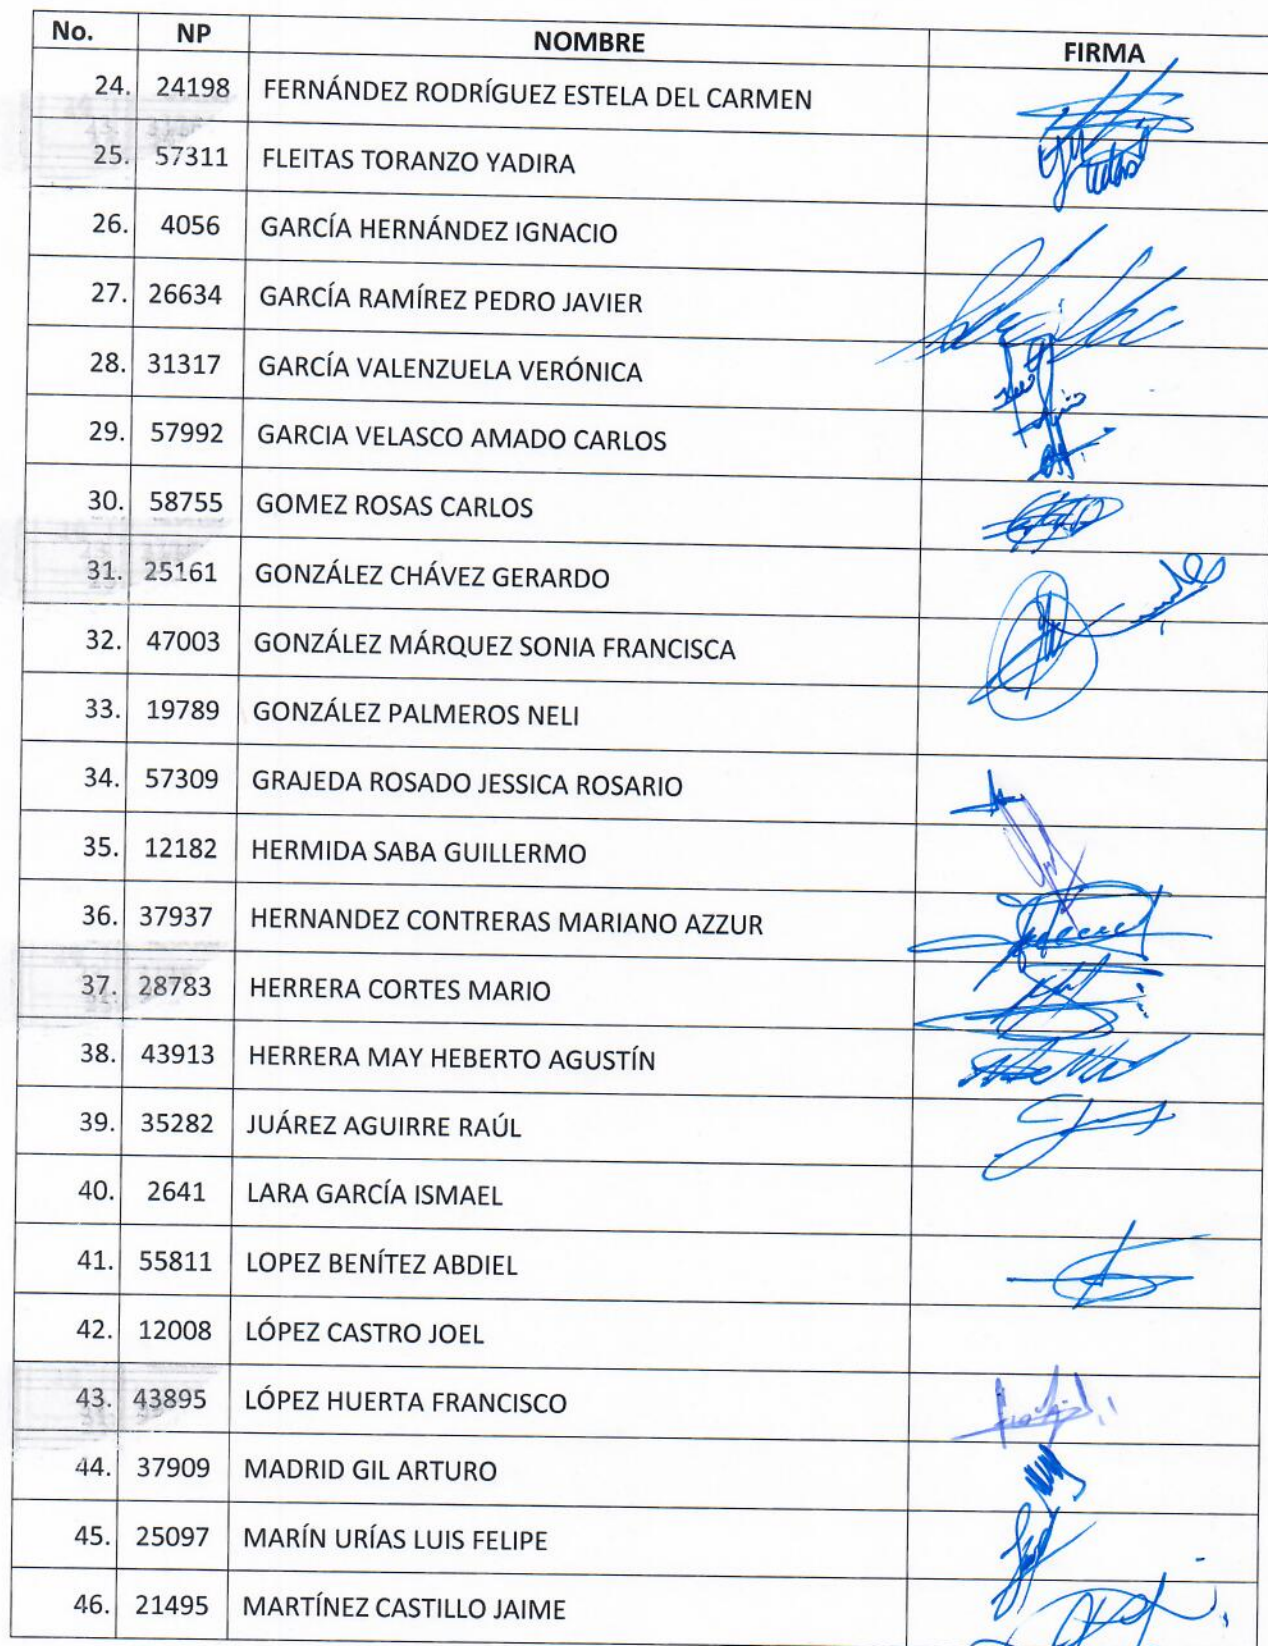 No. NP NOMBRE FIRMA
24. 24198 FERNÁNDEZ RODRÍGUEZ ESTELA DEL CARMEN
25. 57311 FLEITAS TORANZO YADIRA
26. 4056 GARCÍA HERNÁNDEZ IGNACIO
27. 26634 GARCÍA RAMÍREZ PEDRO JAVIER
28. 31317 GARCÍA VALENZUELA VERÓNICA
29. 57992 GARCIA VELASCO AMADO CARLOS
30. 58755 GOMEZ ROSAS CARLOS
31. 25161 GONZÁLEZ CHÁVEZ GERARDO
32. 47003 GONZÁLEZ MÁRQUEZ SONIA FRANCISCA
33. 19789 GONZÁLEZ PALMEROS NELI
34. 57309 GRAJEDA ROSADO JESSICA ROSARIO
35. 12182 HERMIDA SABA GUILLERMO
36. 37937 HERNANDEZ CONTRERAS MARIANO AZZUR
37. 28783 HERRERA CORTES MARIO
38. 43913 HERRERA MAY HEBERTO AGUSTÍN
39. 35282 JUÁREZ AGUIRRE RAÚL
40. 2641 LARA GARCÍA ISMAEL
41. 55811 LOPEZ BENÍTEZ ABDIEL
42. 12008 LÓPEZ CASTRO JOEL
43. 43895 LÓPEZ HUERTA FRANCISCO
44. 37909 MADRID GIL ARTURO
45. 25097 MARÍN URÍAS LUIS FELIPE
46. 21495 MARTÍNEZ CASTILLO JAIME